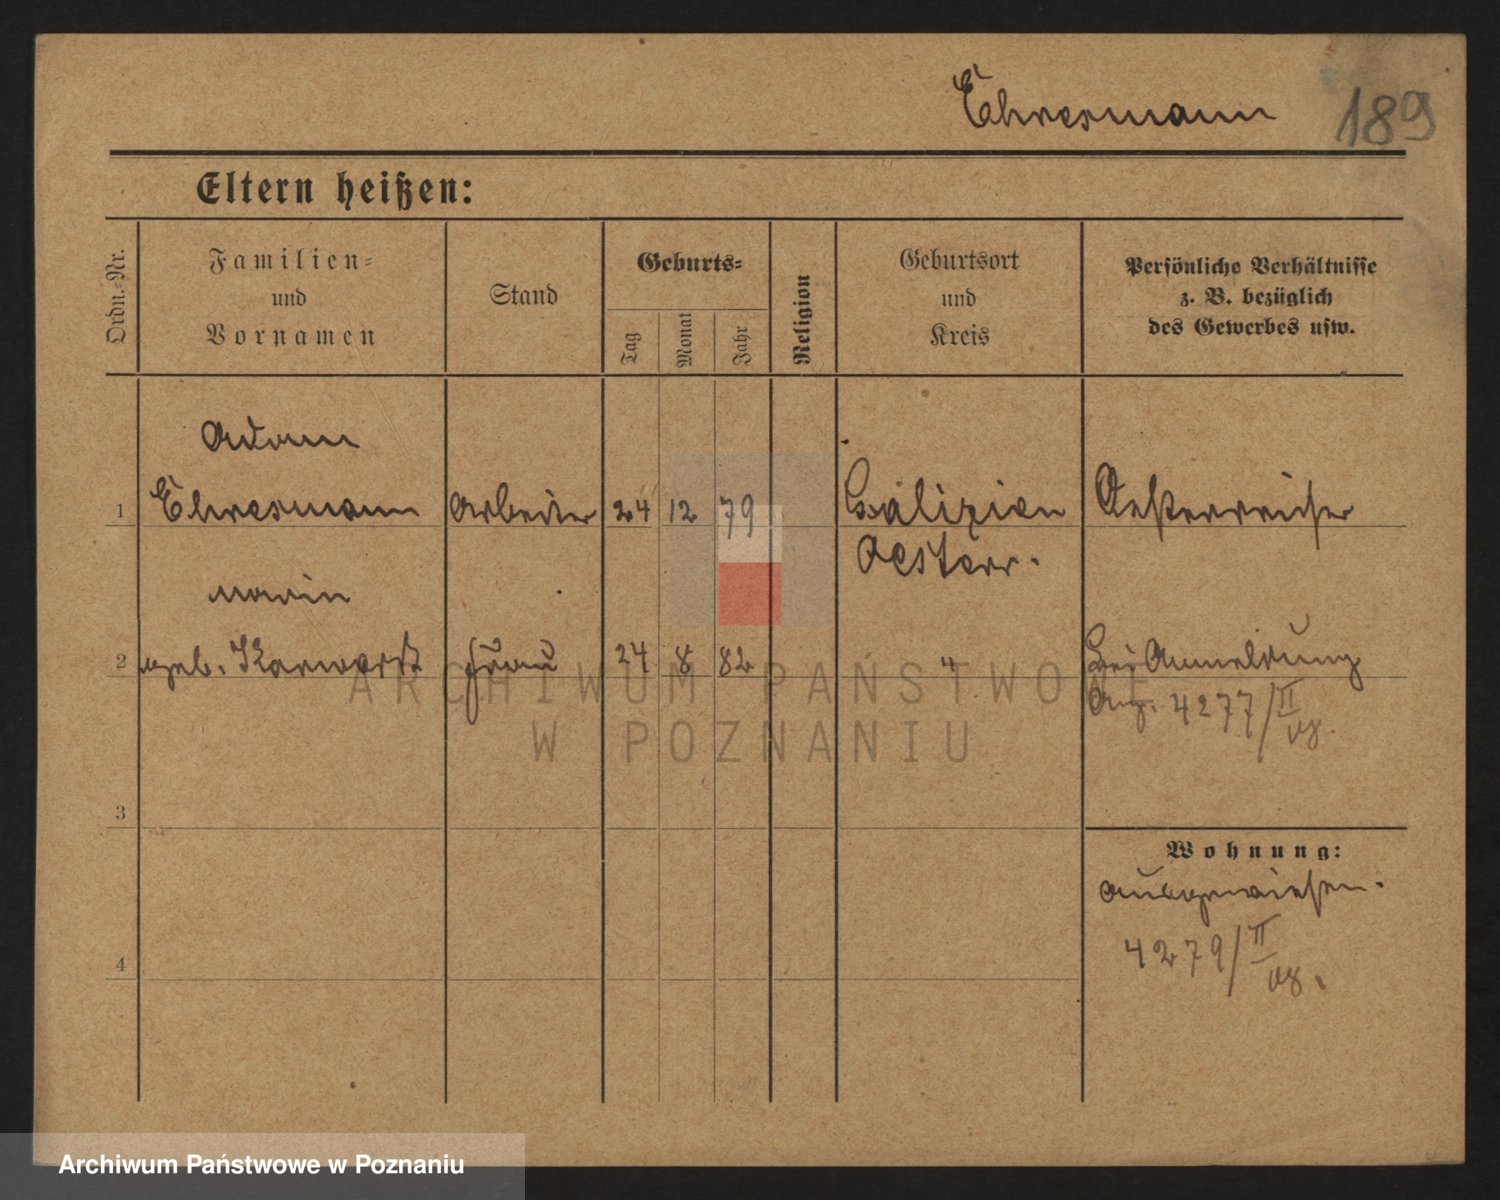 Ehresmann
189
Eltern heißen:
Ordn.-Nr.
Familien-
und
Vornamen
Stand
Geburts-
Tag
Monat
Jahr
Religion
Geburtsort
und
Kreis
Persönliche Verhältnisse
z. B. bezüglich
des Gewerbes usw.
Adam
1 Ehresmann Arbeiter 24 12 79 Galizien Oesterreicher
Oesterr.
Marie
2 geb. Frau 24 8 82 " Bei Anmeldung
Ang. 4277/II
3
Wohnung:
ausgewiesen.
4279/II
4
ARCHIWUM PAŃSTWOWE
W POZNANIU
Archiwum Państwowe w Poznaniu